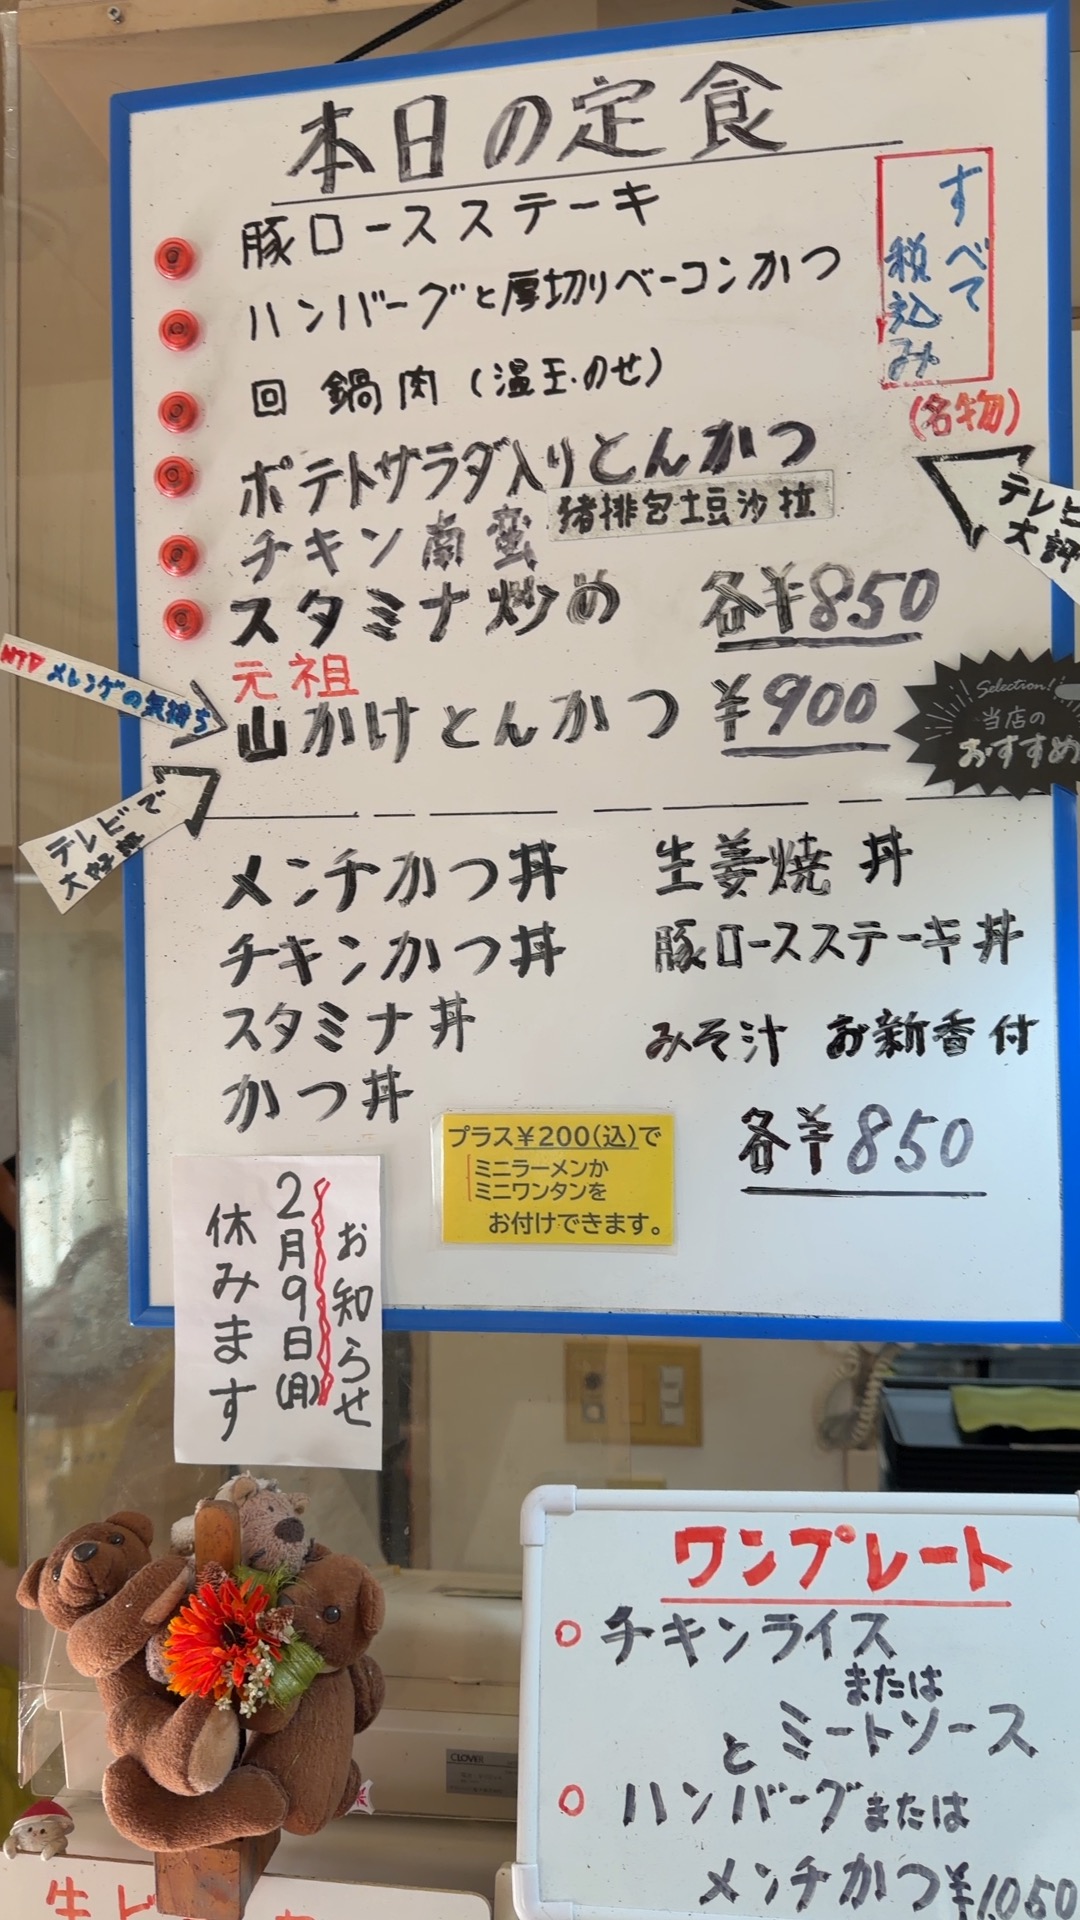 本日の定食
すべて
税込み
豚ロースステーキ
ハンバーグと厚切りベーコンかつ
回鍋肉(温玉のせ)
(名物)
ポテトサラダ入りとんかつ
猪排包土豆沙拉
テレビ
大評
チキン南蛮
スタミナ炒め 各¥850
NTV メレンゲの気持ち
元祖
山かけとんかつ ¥900
Selection!
当店の
おすすめ
テレビで
メンチかつ丼
チキンかつ丼
スタミナ丼
かつ丼
生姜焼丼
豚ロースステーキ丼
みそ汁 お新香付
各¥850
プラス¥200(込)で
ミニラーメンか
ミニワンタンを
お付けできます。
お知らせ
2月9日(月)
休みます
ワンプレート
チキンライス
または
とミートソース
ハンバーグまたは
メンチかつ¥1,050
CLOVER
生ビ